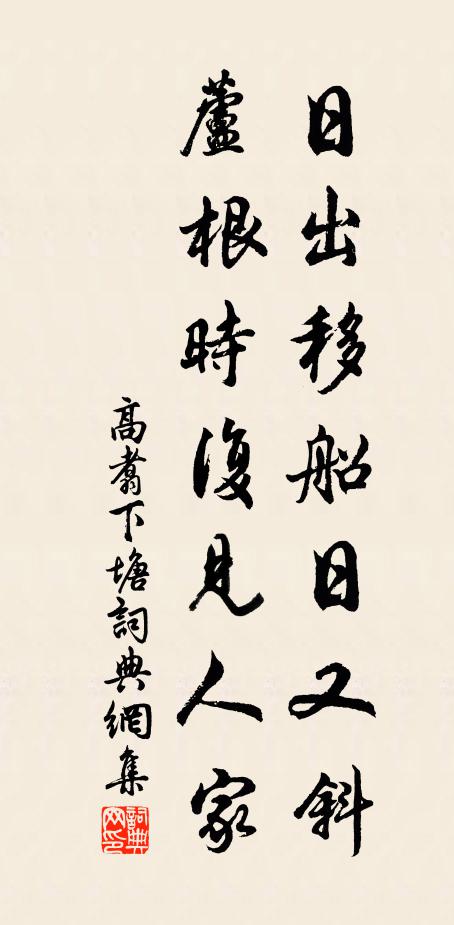 日出移船日又斜
蘆根時復見人家
高翥下塘詞典網集
詞典
网印